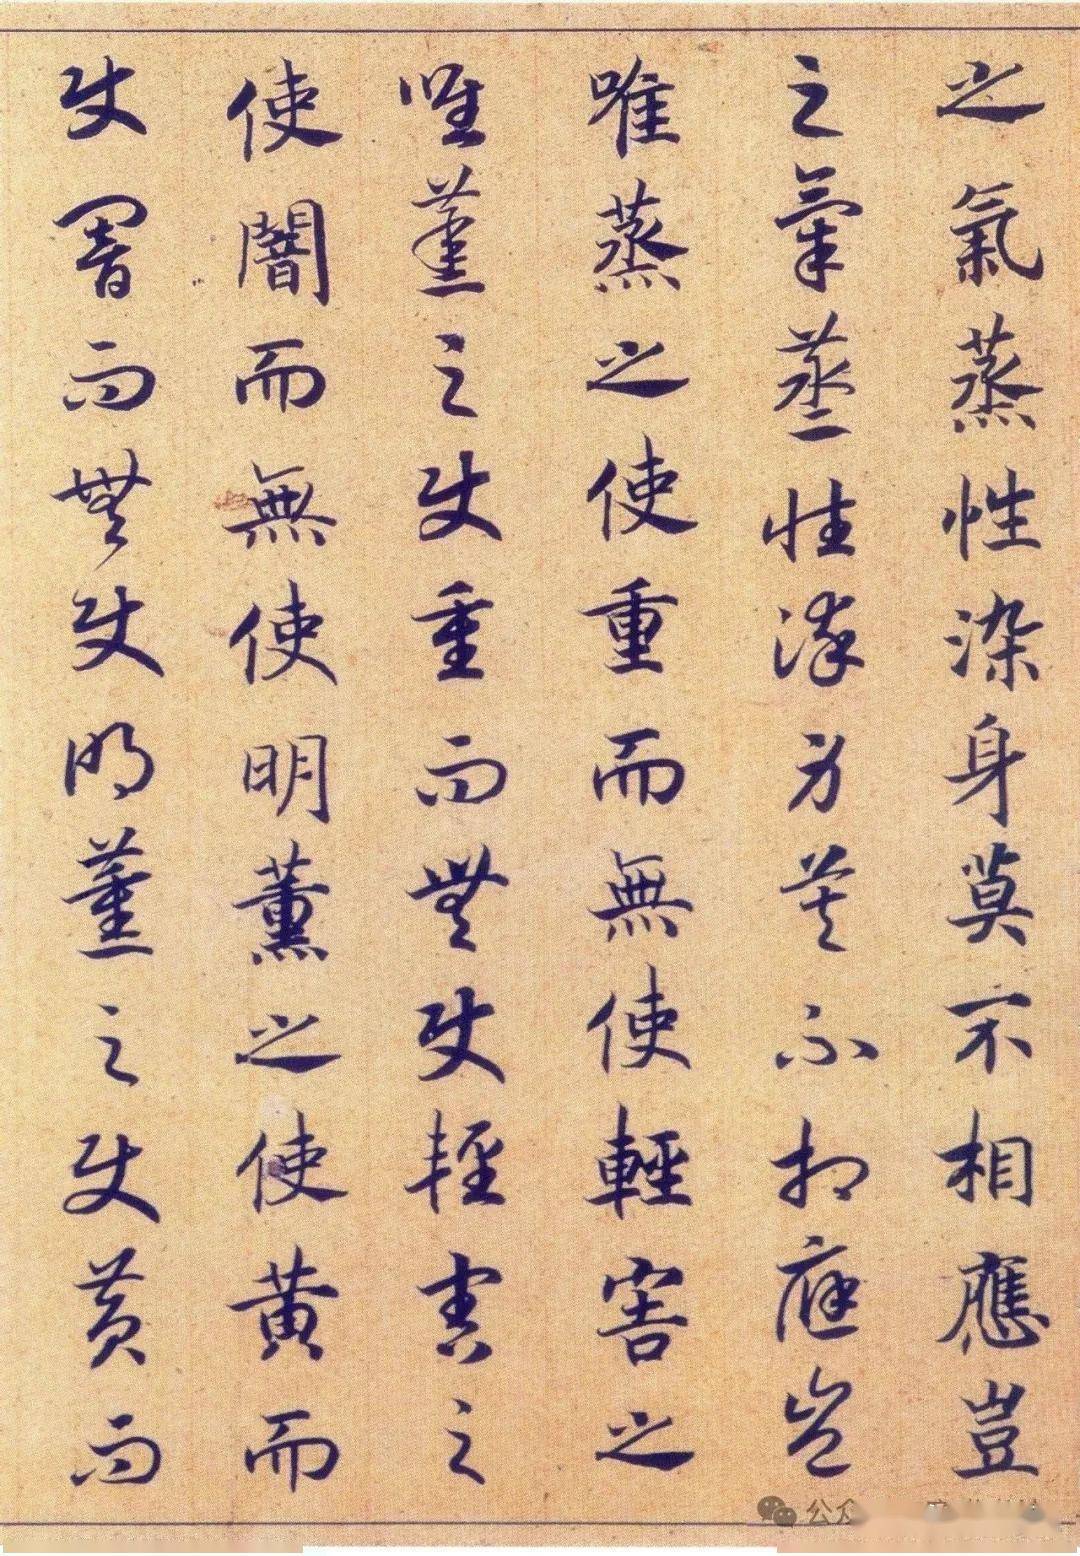 之氣蒸性染身莫不相應豈
之氣蒸性染身莫不相應豈
唯蒸之使重而無使輕害之
唯蒸之使重而無使輕害之
使闇而無使明薰之使黄而
使闇而無使明薰之使黄而
公众